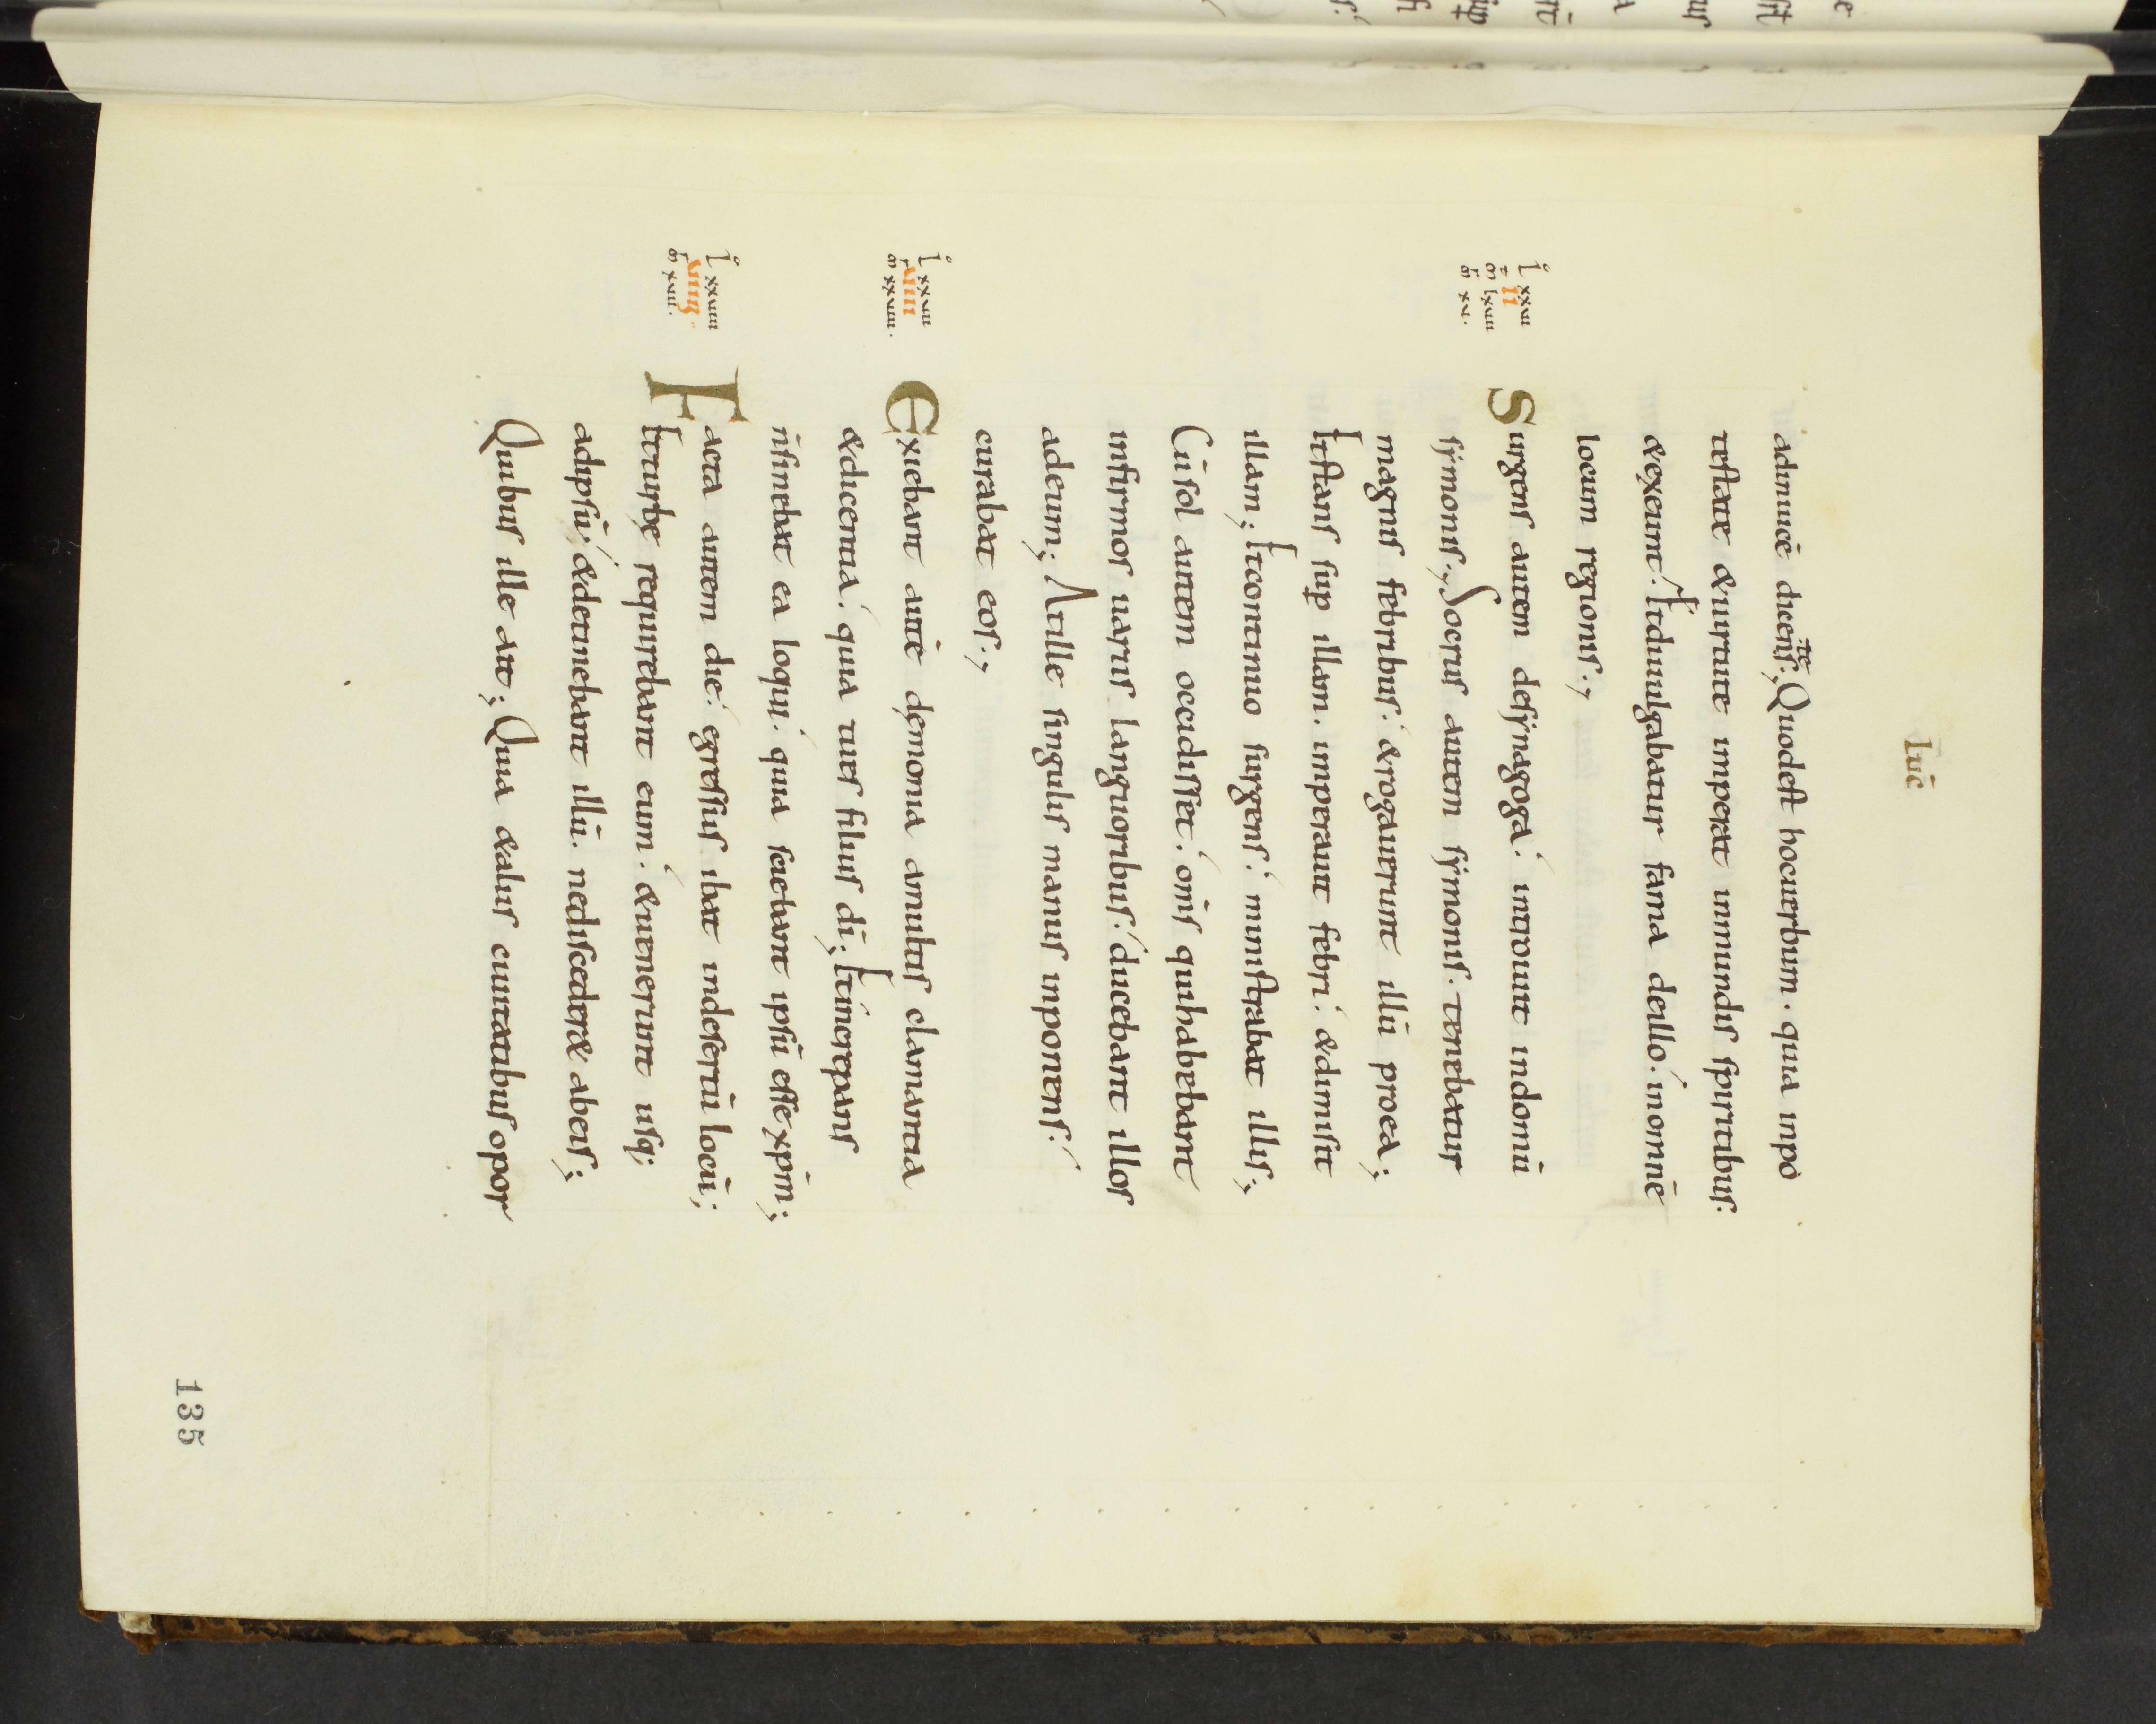 luc̄
adinuicē dicens;, Quodest hocuerbum. quia inpo
te
testate &uirtute imperat inmundis spiritibus.
&exeunt. Etdiuulgabatur fama deillo. inomnē
locum regionis.,
l̊ xxvi
II
m̄ lxvii
m̄r xv.
Surgens autem desynagoga. introiuit indomū
symonis., Socrus autem symonis. tenebatur
magnis febribus. &rogauerunt illū proea;
Etstans sup illam. imperauit febri. &dimisit
illam; Etcontinuo surgens. ministrabat illis;
Cūsol autem occidisset. om̄s quihabebant
infirmos uariis languoribus. ducebant illos
adeum; Atille singulis manus inponens.
curabat eos.,
l̊ xxvii
VIII
m̄r xxviii.
Exiebant autē dęmonia amultis clamantia
&dicentia. quia tues filius dī; Etincrepans
n̄sinebat ea loqui. quia sciebant ipsū esse xp̄m;
l̊ xxviii
VIIII
m̄r xvii.
Facta autem die. egressus ibat indesertū locū;
Etturbę requirebant eum. &uenerunt usq;
adipsū. &detinebant illū. nedisceder& abeis;
Quibus ille ait; Quia &aliis ciuitatibus opor
135